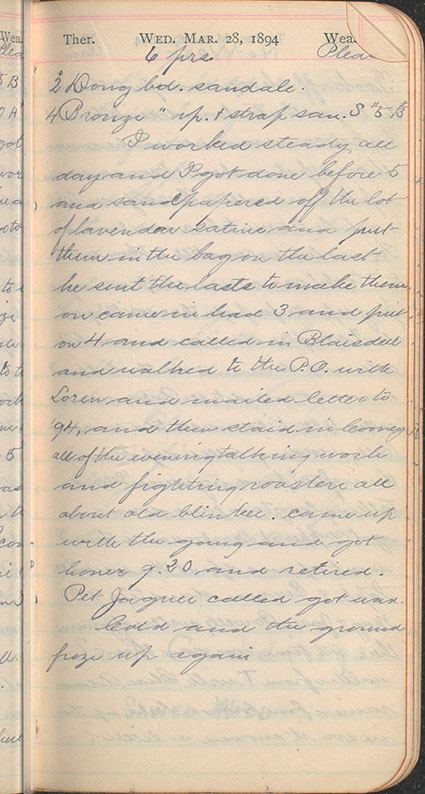 Ther. WED. MAR. 28, 1894 Wea.
6 prs. Plea
2 Dong bd. sandale.
4 Bronze " op. 1 strap san. S #5 B
I worked steady all
day and I got done before 5
and sandpapered off the lot
of lavender satine and put
them in the bag on the last
he sent the lasts to make them
on came in had 3 and put
on 4 and called in Blaisdell
and walked to the P.O. with
Loren and mailed letter to
94, and then staid in Cooney
all of the evening talking work
and fighting roosters all
about old blinkee. came up
with the gang and got
home 9.20 and retired.
Pet Jaques called got wax.
Cold and the ground
froze up again